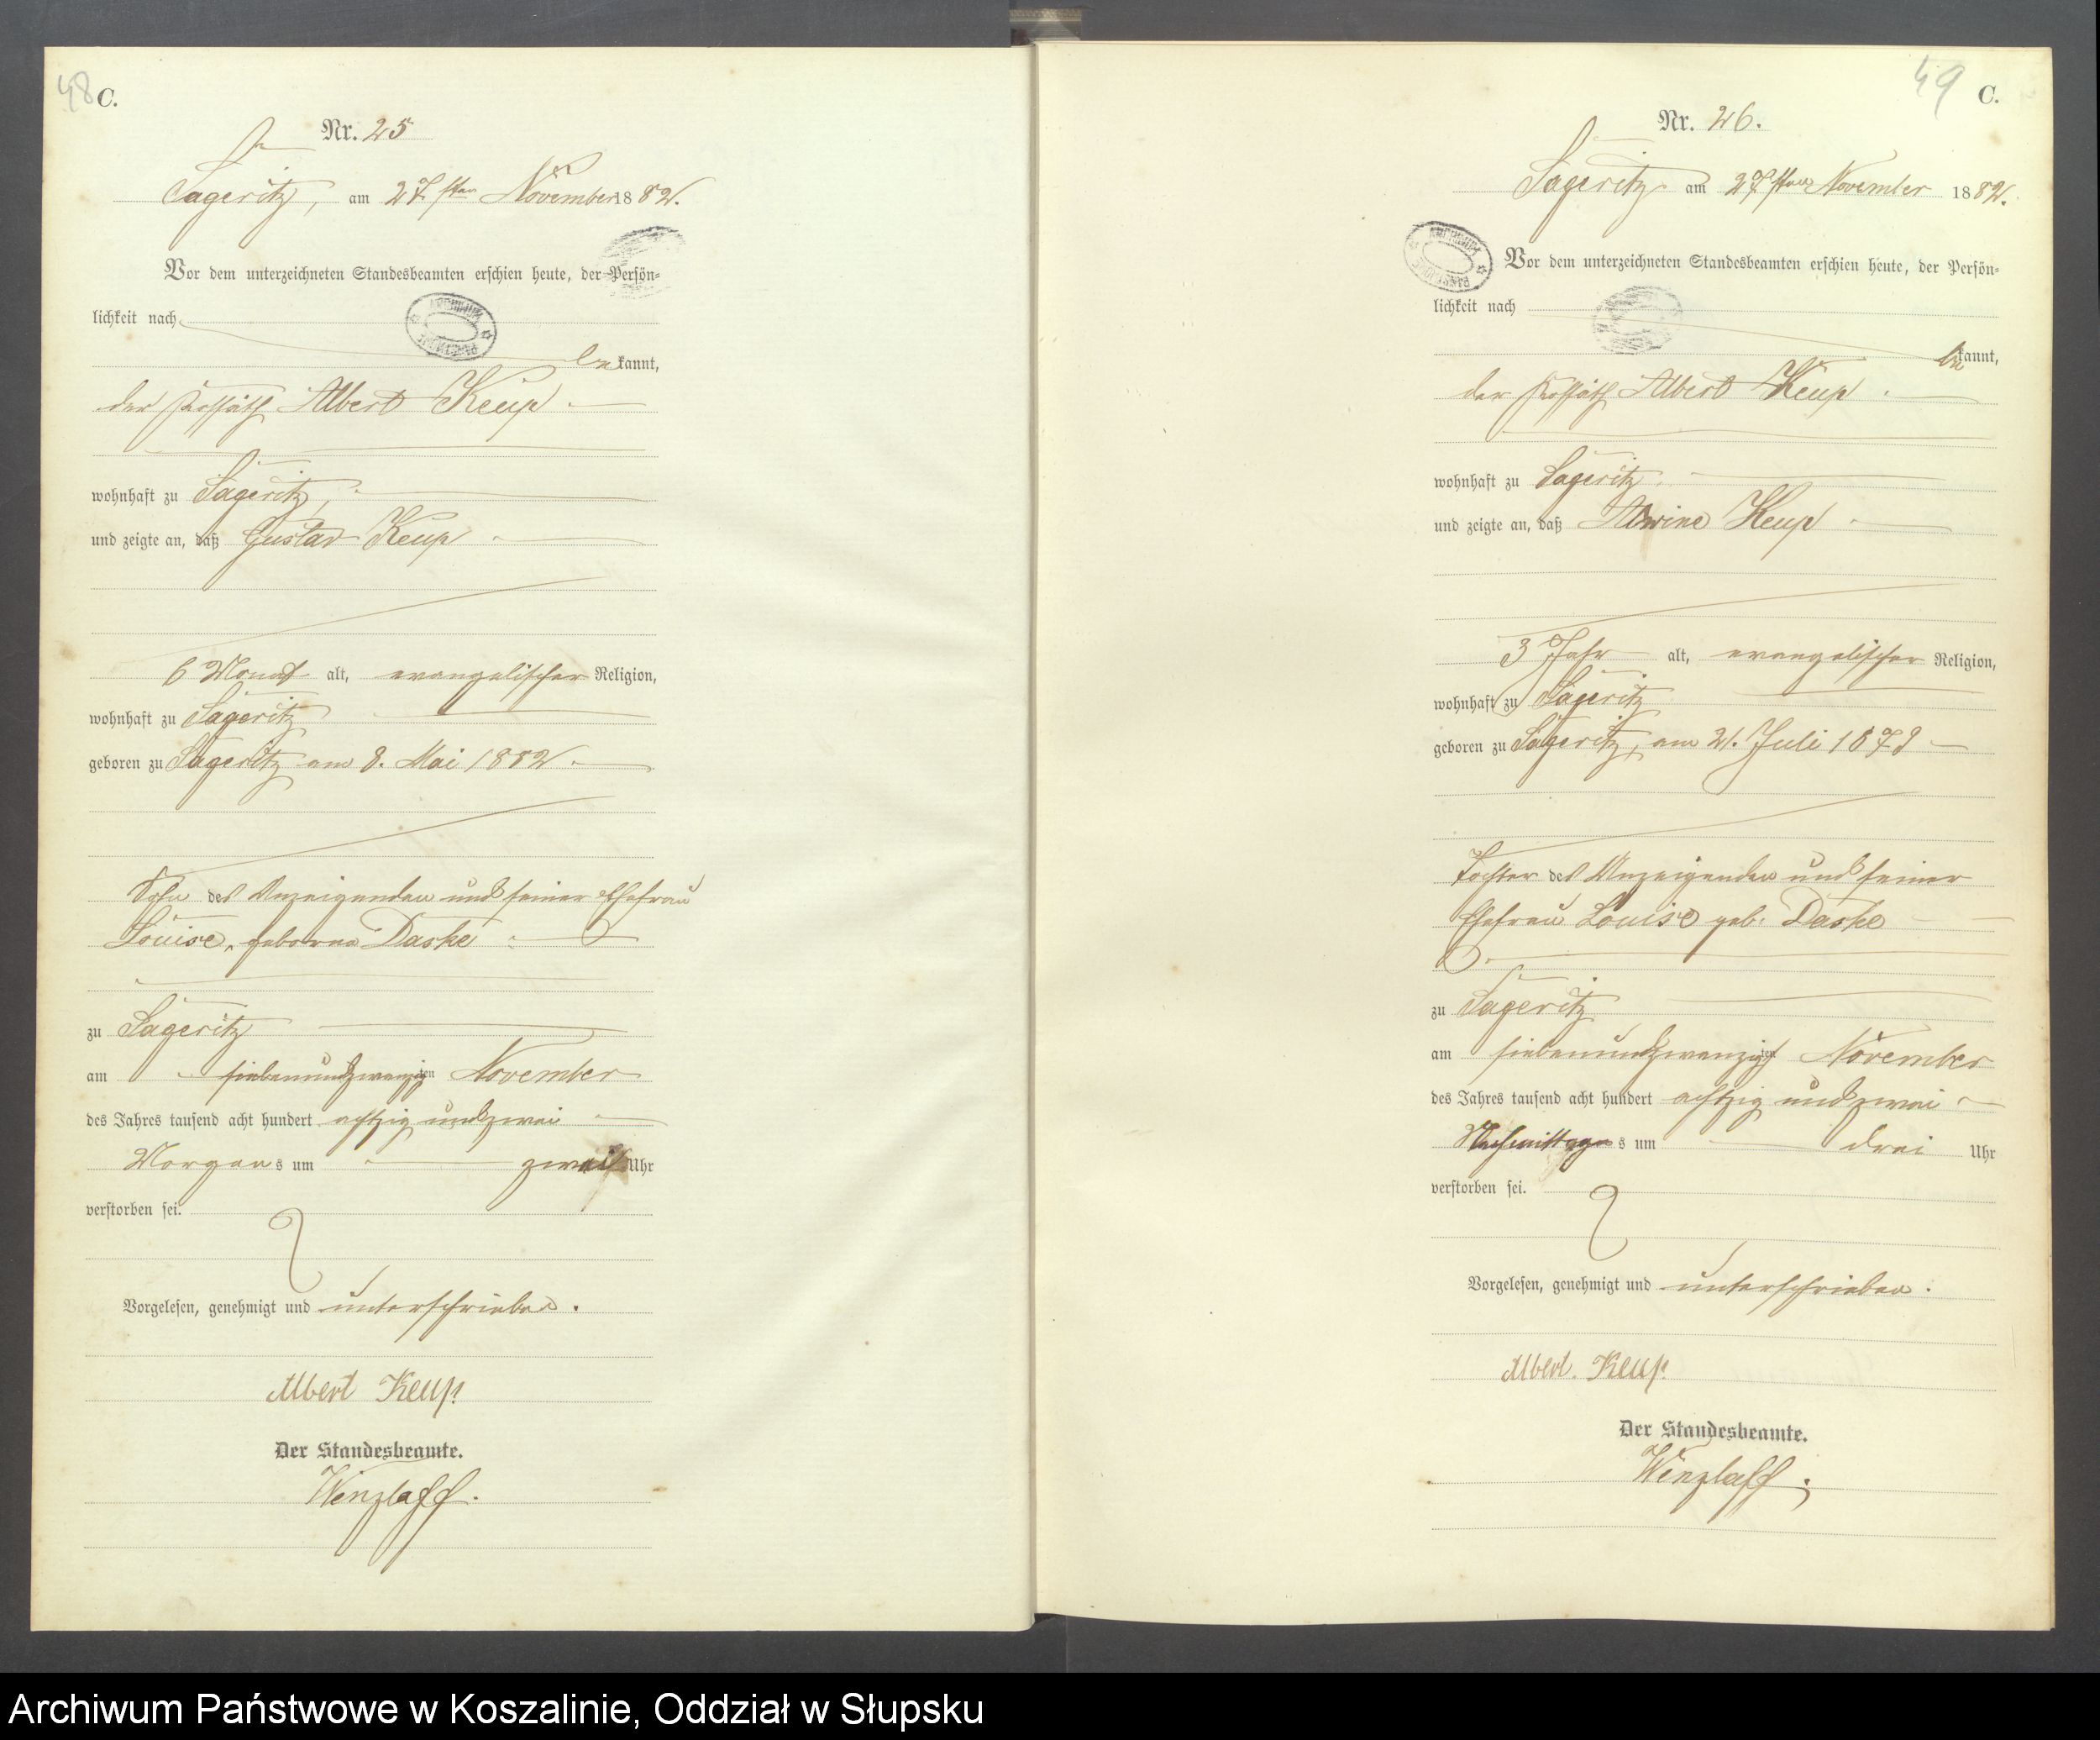 48 C.
Nr. 25
Sageritz, am 27ten November 1882.
Vor dem unterzeichneten Standesbeamten erschien heute, der Persön-
lichkeit nach
bekannt,
der Kossäth Albert Keup.
wohnhaft zu Sageritz,
und zeigte an, daß Gustav Keup
6 Monat alt, evangelischer Religion,
wohnhaft zu Sageritz
geboren zu Sageritz am 8. Mai 1882.
Sohn des Anzeigenden und seiner Ehefrau
Louise, geborne Daske
zu Sageritz
am siebenundzwanzigten November
des Jahres tausend acht hundert achtzig und zwei
Morgens um zwei Uhr
verstorben sei.
Vorgelesen, genehmigt und unterschrieben.
Albert Keup
Der Standesbeamte.
Wenzlaff.
49 C.
Nr. 26.
Sageritz am 27ten November 1882.
ARCHIWUM
Vor dem unterzeichneten Standesbeamten erschien heute, der Persön-
lichkeit nach
bekannt,
der Kossäth Albert Keup.
wohnhaft zu Sageritz.
und zeigte an, daß Alwine Keup
3 Jahr alt, evangelischer Religion,
wohnhaft zu Sageritz
geboren zu Sageritz, am 21. Juli 1879
Tochter des Anzeigenden und seiner
Ehefrau Louise geb. Daske
zu Sageritz
am siebenundzwanzigten November
des Jahres tausend acht hundert achtzig und zwei
Nachmittags um drei Uhr
verstorben sei.
Vorgelesen, genehmigt und unterschrieben.
Albert. Keup.
Der Standesbeamte.
Wenzlaff.
Archiwum Państwowe w Koszalinie, Oddział w Słupsku